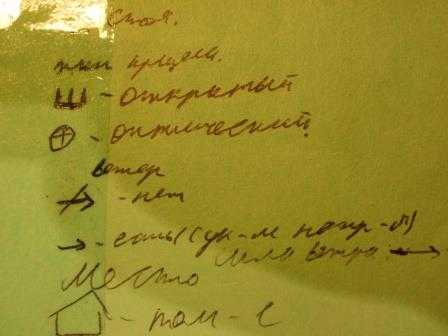 стоя.
тип прицела.
- открытый
- оптический
ветер
- нет
- есть (ук-м напр-
сила ветра
Место
- пом-е